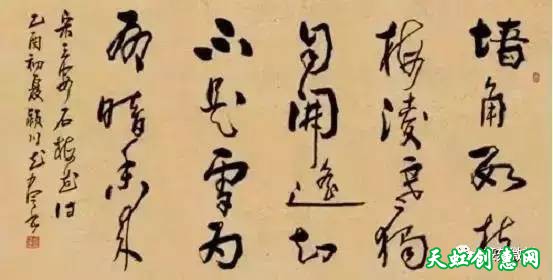 墙角数枝
梅凌寒独
自開遥知
不是雪为
有暗香来
宋王安石梅花诗
乙酉初夏
天虹创意网